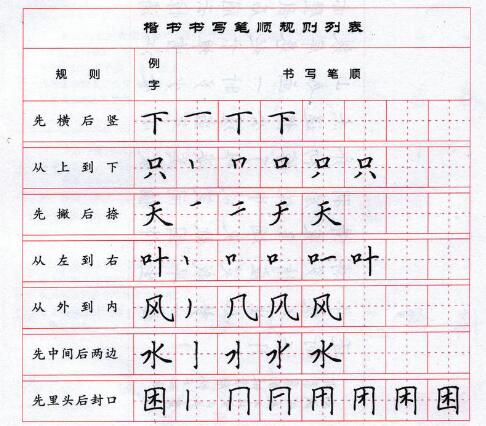 楷书书写笔顺规则列表
规则 例字 书写笔顺
先横后竖 下 一 丅 下
从上到下 只 丨 口 口 只 只
先撇后捺 天 一 二 チ 天
从左到右 叶 丨 口 口 叶 叶
从外到内 风 丿 几 风 风
先中间后两边 水 亅 水 水
先里头后封口 困 丨 冂 冂 用 闭 困 困